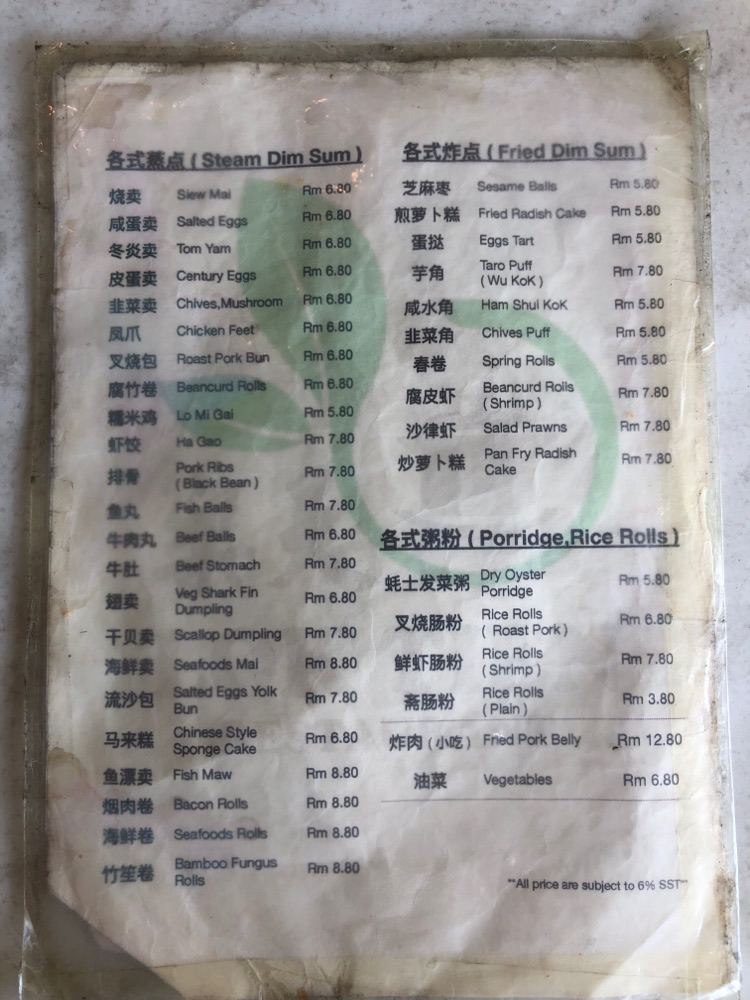 各式蒸点 ( Steam Dim Sum )
烧卖 Siew Mai Rm 6.80
咸蛋卖 Salted Eggs Rm 6.80
冬炎卖 Tom Yam Rm 6.80
皮蛋卖 Century Eggs Rm 6.80
韭菜卖 Chives,Mushroom Rm 6.80
凤爪 Chicken Feet Rm 6.80
叉烧包 Roast Pork Bun Rm 6.80
腐竹卷 Beancurd Rolls Rm 6.80
糯米鸡 Lo Mi Gai Rm 5.80
虾饺 Ha Gao Rm 7.80
排骨 Pork Ribs Rm 7.80
( Black Bean )
鱼丸 Fish Balls Rm 7.80
牛肉丸 Beef Balls Rm 6.80
牛肚 Beef Stomach Rm 7.80
翅卖 Veg Shark Fin Rm 6.80
Dumpling
干贝卖 Scallop Dumpling Rm 7.80
海鲜卖 Seafoods Mai Rm 8.80
流沙包 Salted Eggs Yolk Rm 7.80
Bun
马来糕 Chinese Style Rm 6.80
Sponge Cake
鱼漂卖 Fish Maw Rm 8.80
烟肉卷 Bacon Rolls Rm 8.80
海鲜卷 Seafoods Rolls Rm 8.80
竹笙卷 Bamboo Fungus Rm 8.80
Rolls
各式炸点 ( Fried Dim Sum )
芝麻枣 Sesame Balls Rm 5.80
煎萝卜糕 Fried Radish Cake Rm 5.80
蛋挞 Eggs Tart Rm 5.80
芋角 Taro Puff Rm 7.80
( Wu KoK )
咸水角 Ham Shui KoK Rm 5.80
韭菜角 Chives Puff Rm 5.80
春卷 Spring Rolls Rm 5.80
腐皮虾 Beancurd Rolls Rm 7.80
( Shrimp )
沙律虾 Salad Prawns Rm 7.80
炒萝卜糕 Pan Fry Radish Rm 7.80
Cake
各式粥粉 ( Porridge,Rice Rolls )
蚝士发菜粥 Dry Oyster Rm 5.80
Porridge
叉烧肠粉 Rice Rolls Rm 6.80
( Roast Pork )
鲜虾肠粉 Rice Rolls Rm 7.80
( Shrimp )
斋肠粉 Rice Rolls Rm 3.80
( Plain )
炸肉 ( 小吃 ) Fried Pork Belly Rm 12.80
油菜 Vegetables Rm 6.80
**All price are subject to 6% SST**